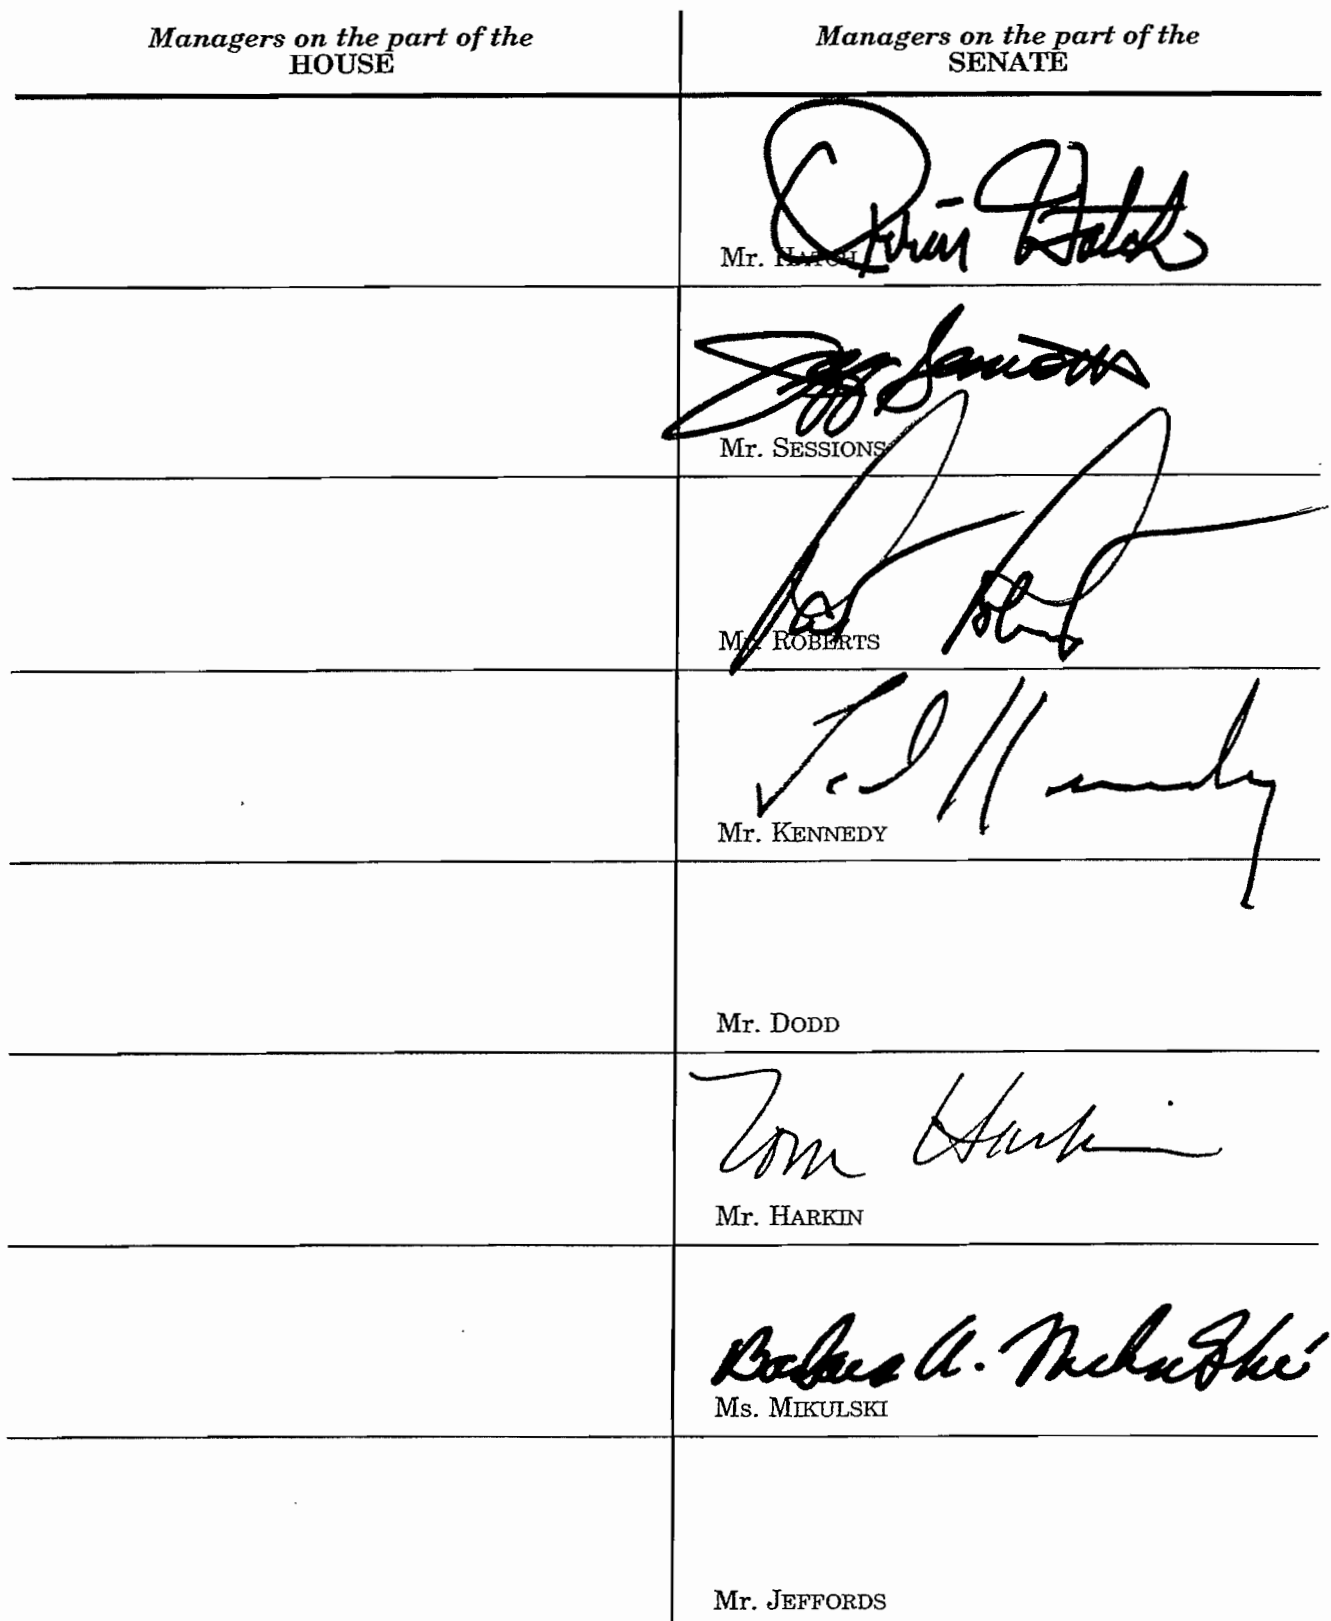 Managers on the part of the
HOUSE
Managers on the part of the
SENATE
Orrin Hatch
Mr. HATCH
Jeff Sessions
Mr. SESSIONS
Pat Roberts
Mr. ROBERTS
Ted Kennedy
Mr. KENNEDY
Mr. DODD
Tom Harkin
Mr. HARKIN
Barbara A. Mikulski
Ms. MIKULSKI
Mr. JEFFORDS